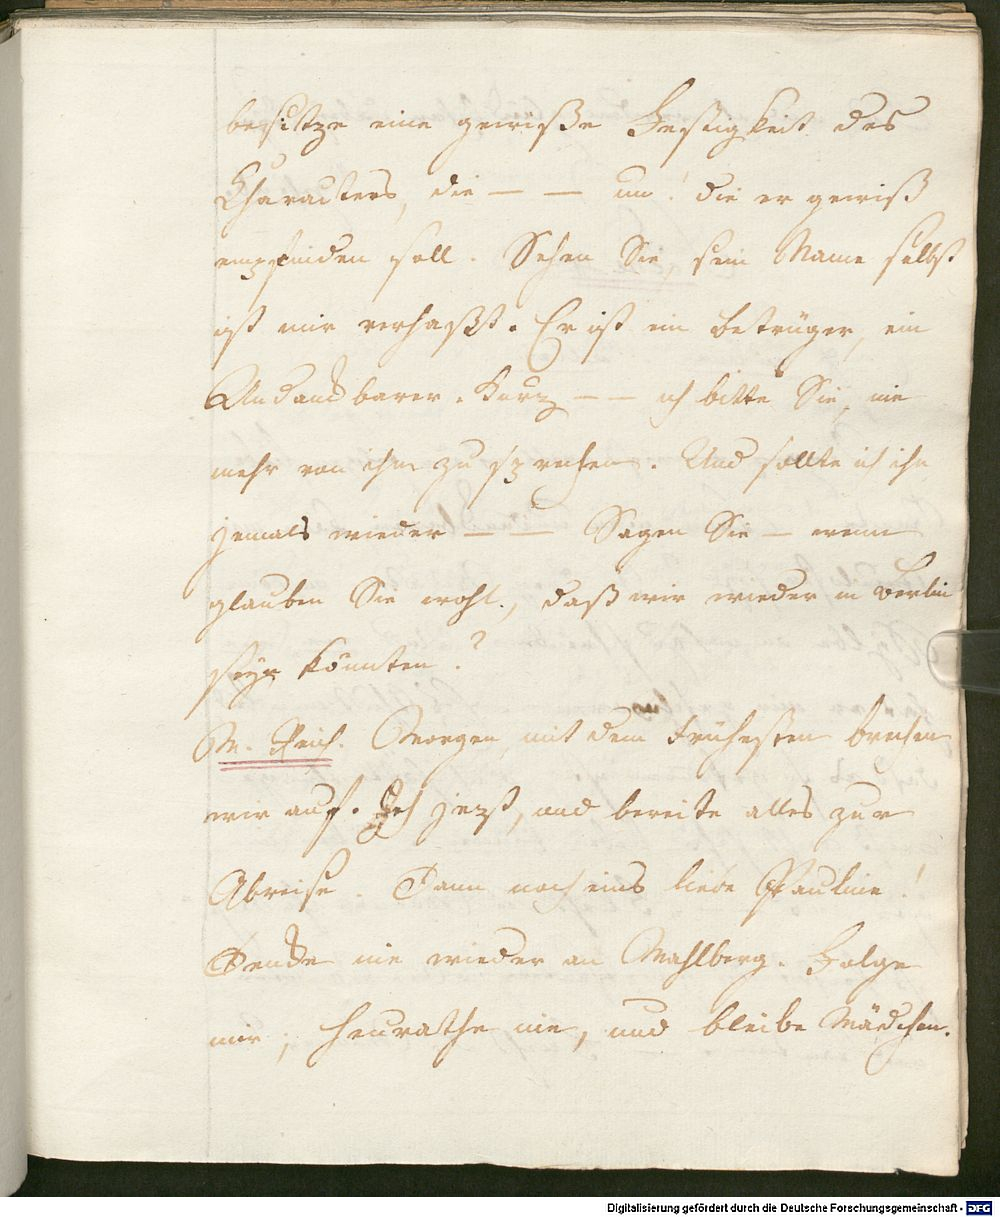 besitze eine gewiße Festigkeit des
Charackters, die — — nu! die er gewiß
empfinden soll. Sehen Sie sein Name selbst
ist mir verhaßt. Er ist ein Betrüger, ein
Undankbarer. Kurz — — ich bitte Sie, nie
mehr von ihm zu sprechen. Und sollte ich ihn
jemals wieder — — Sagen Sie — wenn
glauben Sie wohl, daß wir wieder in Berlin
seyn könnten?
M. Reich. Morgen, mit dem frühesten brechen
wir auf. Geh jezt, und bereite alles zur
Abreise. Dann noch eins liebe Pauline!
Denke nie wieder an Wahlberg. Folge
mir, heurathe nie, und bleibe Mädchen.
Digitalisierung gefördert durch die Deutsche Forschungsgemeinschaft - DFG